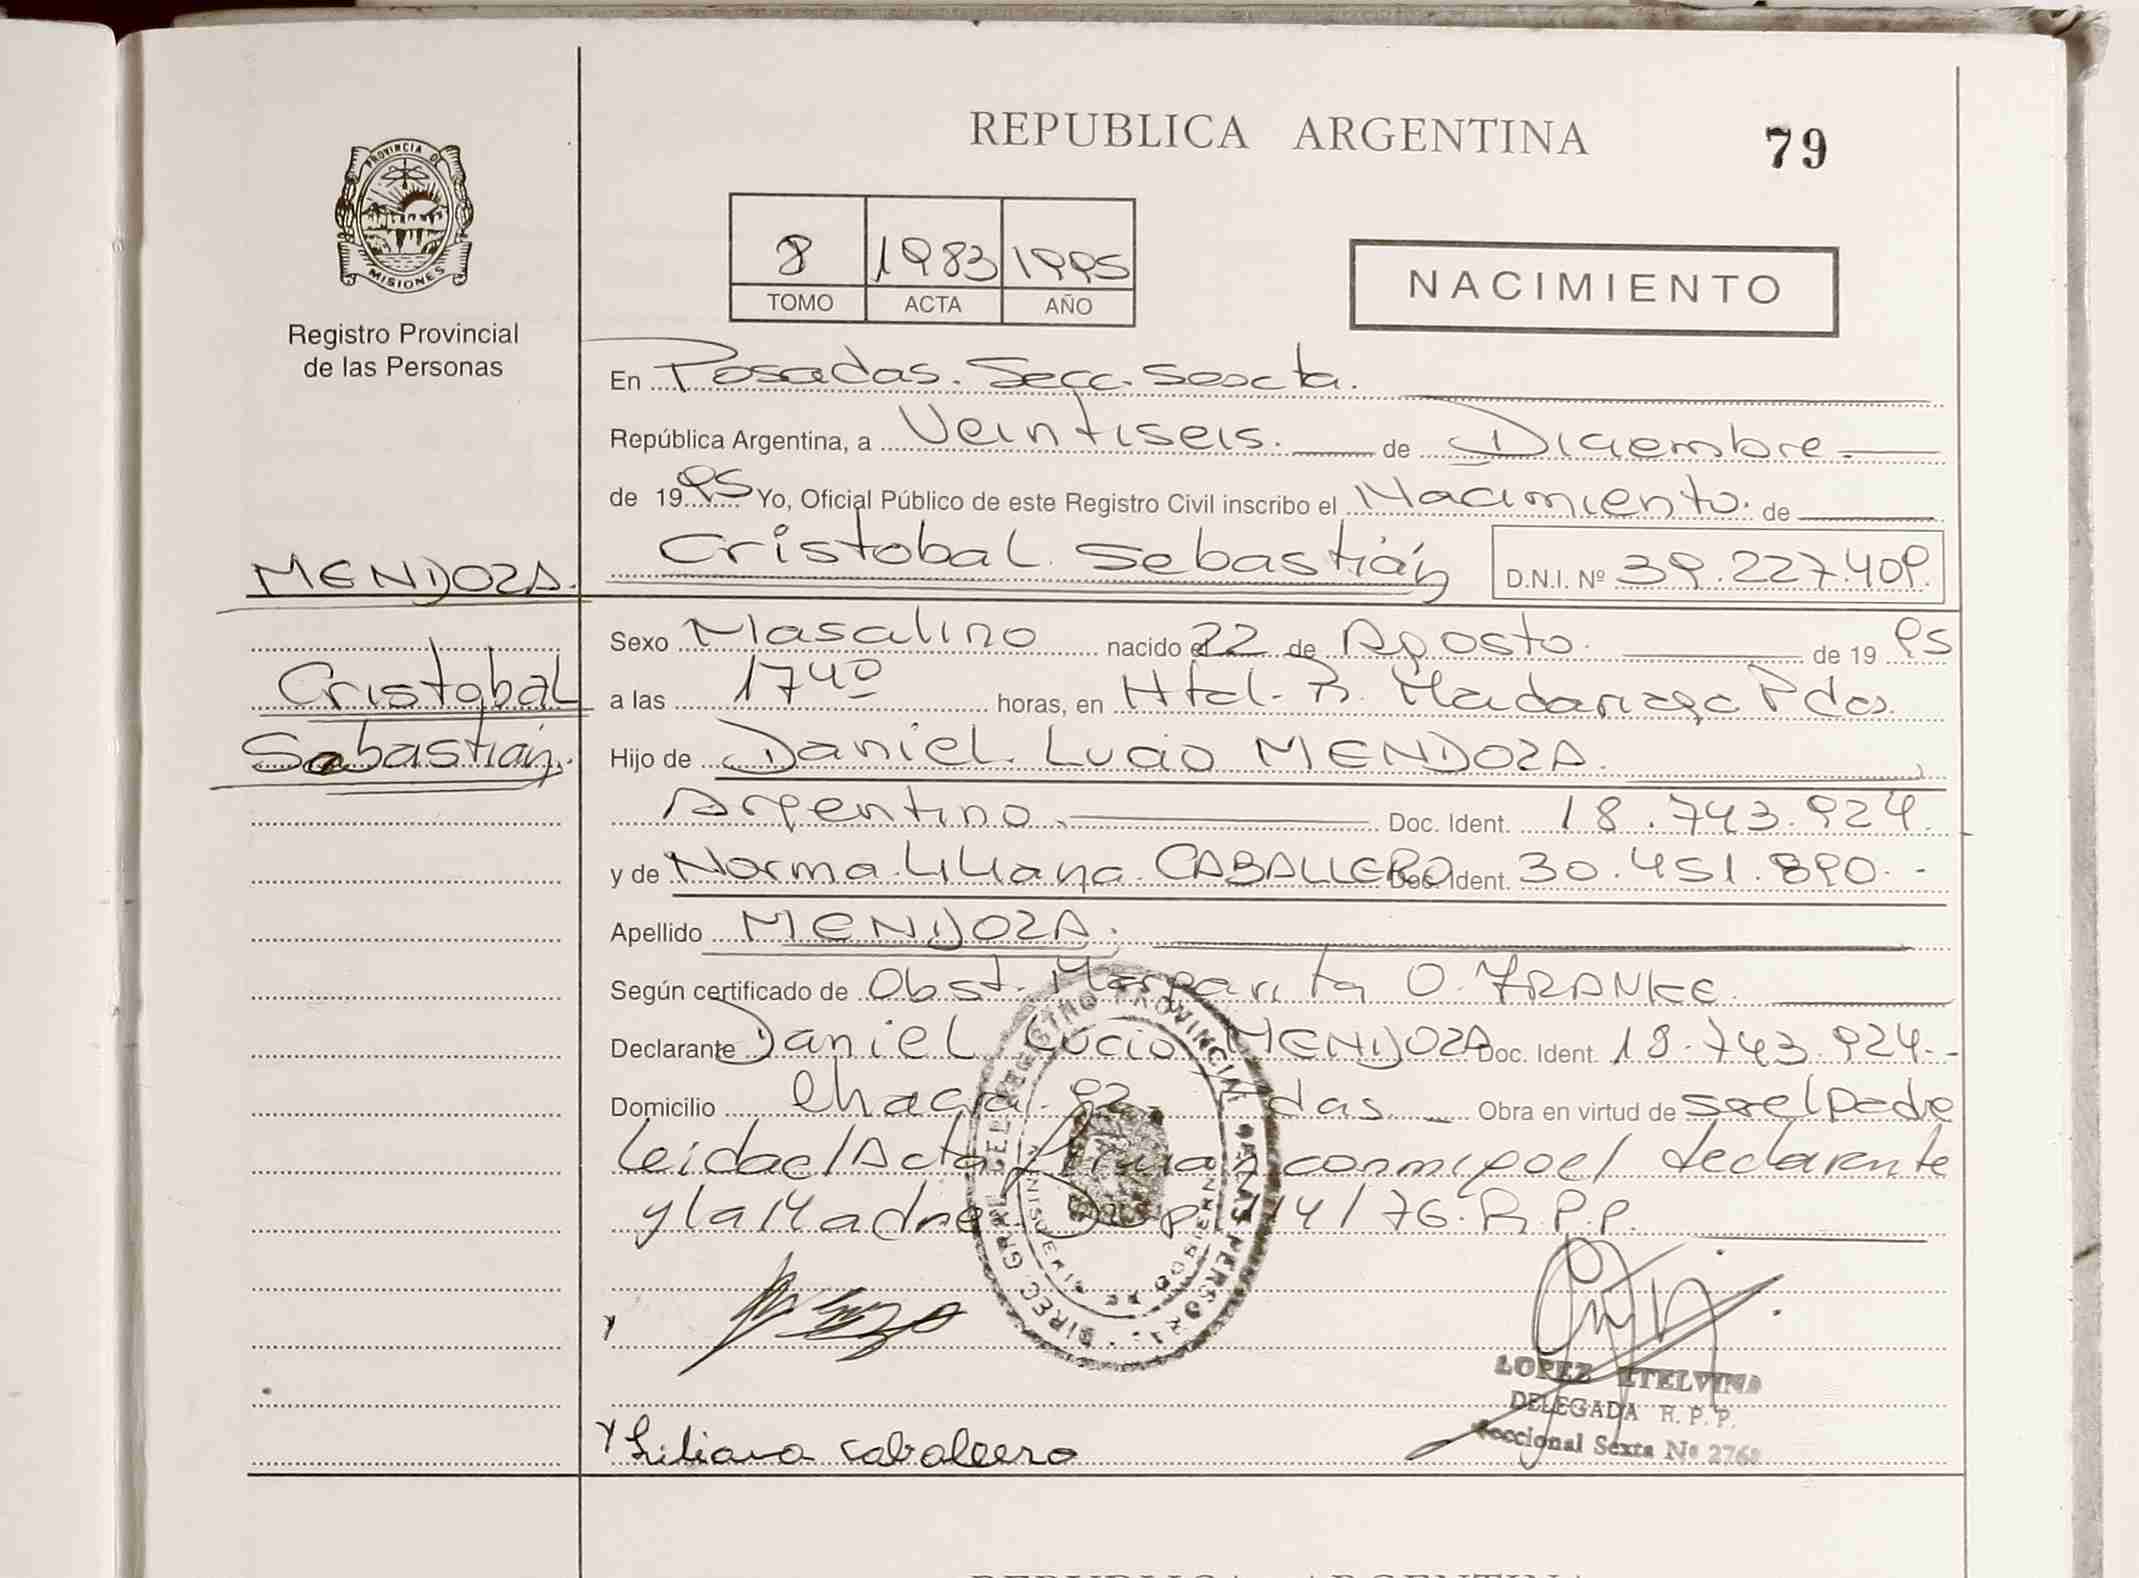 REPUBLICA ARGENTINA
79
PROVINCIA DE
MISIONES
Registro Provincial
de las Personas
8 1983 1995
TOMO ACTA AÑO
NACIMIENTO
En Posadas. Secc. Sexta.
República Argentina, a Veintiseis. de Diciembre
de 1995 Yo, Oficial Público de este Registro Civil inscribo el Nacimiento. de
MENDOZA.
Cristobal Sebastián D.N.I. Nº 39.227.409.
Cristobal
Sebastián.
Sexo Masculino nacido el 22 de Agosto. de 1995
a las 17 40 horas, en Htal. R. Madariaga Pdas.
Hijo de Daniel Lucio MENDOZA.
Argentino. Doc. Ident. 18.743.924.
y de Norma Liliana CABALLERO Doc. Ident. 30.451.890.-
Apellido MENDOZA.
Según certificado de Obst. Margarita O. FRANKE.
Declarante Daniel Lucio MENDOZA Doc. Ident. 18.743.924.-
Domicilio Chacra 92 Pdas. Obra en virtud de ser el padre
Leida el Acta Firman conmigo el declarante
y la Madre Disp 14/76. R.P.P.
DIREC GRAL DEL REGISTRO PROVINCIAL DE LAS PERSONAS
Liliana Caballero
LOPEZ ETELVINA
DELEGADA R. P. P.
Seccional Sexta Nº 2768
REPUBLICA ARGENTINA